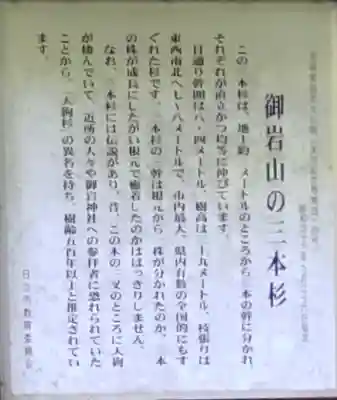 御岩山の三本杉
この三本杉は、地上約　メートルのところから　本の幹に分かれ
それぞれが直立かつ均等に伸びています。
目通り幹囲は八・四メートル、樹高は　十九メートル、枝張りは
東西南北へ七〜八メートルで、市内最大、県内有数の全国的にもす
ぐれた杉です。三本杉の三幹は根元から　株が分かれたのか、　本
の株が成長にしたがい根元で癒着したのかははっきりしません。
なお、三本杉には伝説があり、昔、この木の三叉のところに天狗
が棲んでいて、近所の人々や御岩神社への参拝者に恐れられていた
ことから、「天狗杉」の異名を持ち、樹齢五百年以上と推定されてい
ます。
日立市教育委員会